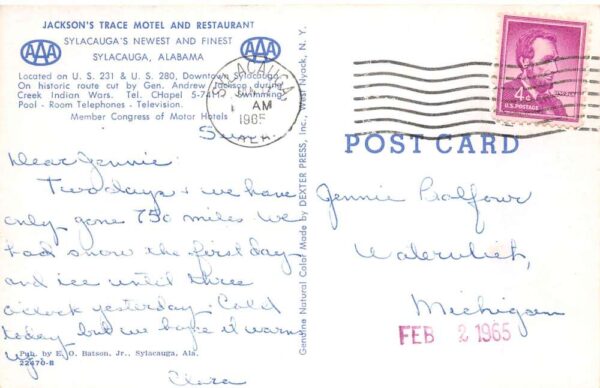 JACKSON'S TRACE MOTEL AND RESTAURANT
SYLACAUGA'S NEWEST AND FINEST
SYLACAUGA, ALABAMA
AAA
AAA
Located on U. S. 231 & U. S. 280, Downtown Sylacauga.
On historic route cut by Gen. Andrew Jackson during
Creek Indian Wars. Tel. Chapel 5-7411. Swimming
Pool - Room Telephones - Television.
Member Congress of Motor Hotels
SYLACAUGA
AM
1965
ALA.
4¢
U.S. POSTAGE
LINCOLN
POST CARD
Genuine Natural Color Made by DEXTER PRESS, Inc., West Nyack, N. Y.
Sun.
Dear Jennie:
Two days & we have
only gone 750 miles We
had snow the first day
and ice until three
o'clock yesterday. Cold
today but we hope it warms
up.
Clara
Jennie Balfour
Watervliet,
Michigan
FEB 2 1965
Pub. by E. O. Batson, Jr., Sylacauga, Ala.
22470-B